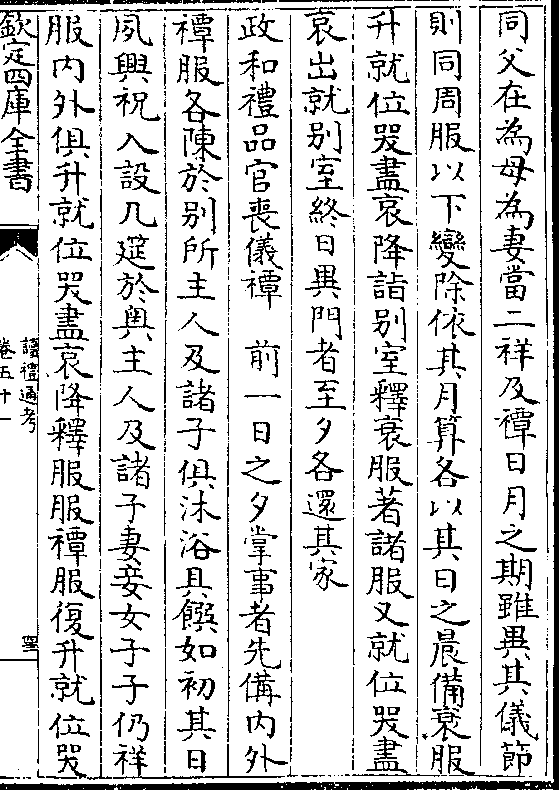 同父在為母為妻當二祥及禫日月之期雖異其儀節
則同周服以下變除依其月算各以其日之晨備衰服
升就位哭盡哀降詣别室釋衰服著諸服又就位哭盡
哀出就别室終日異門者至夕各還其家
政和禮品官喪儀禫　前一日之夕掌事者先備内外
禫服各陳於别所主人及諸子俱沐浴具饌如初其日
夙興祝入設几筵於奥主人及諸子妻妾女子子仍祥
服内外俱升就位哭盡哀降釋服服禫服復升就位哭
欽定四庫全書
讀禮通考
卷五十一